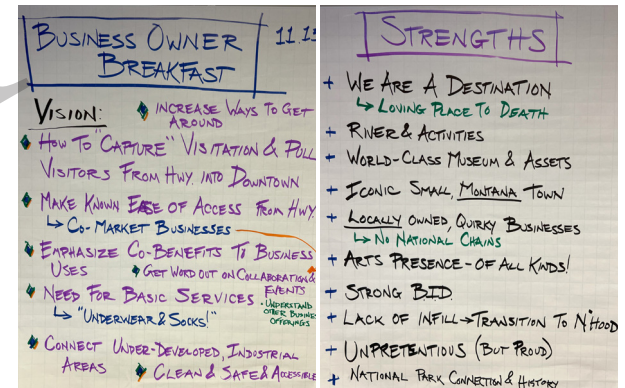 BUSINESS OWNER
BREAKFAST
VISION:
INCREASE WAYS TO GET
AROUND
HOW TO "CAPTURE" VISITATION & PULL
VISITORS FROM HWY. INTO DOWNTOWN
MAKE KNOWN EASE OF ACCESS FROM HWY.
CO-MARKET BUSINESSES
EMPHASIZE CO-BENEFITS TO BUSINESS
USES
GET WORD OUT ON COLLABORATION &
EVENTS
NEED FOR BASIC SERVICES
"UNDERWEAR & SOCKS!"
UNDERSTAND
OTHER
OFFERINGS
CONNECT UNDER-DEVELOPED, INDUSTRIAL
AREAS
CLEAN & SAFE & ACCESSIBLE
STRENGTHS
+ WE ARE A DESTINATION
↳ LOVING PLACE TO DEATH
+ RIVER & ACTIVITIES
+ WORLD-CLASS MUSEUM & ASSETS
+ ICONIC SMALL, MONTANA TOWN
+ LOCALLY OWNED, QUIRKY BUSINESSES
↳ NO NATIONAL CHAINS
+ ARTS PRESENCE - OF ALL KINDS!
+ STRONG BID.
+ LACK OF INFILL → TRANSITION TO N'HOOD
+ UNPRETENTIOUS (BUT PROUD)
+ NATIONAL PARK CONNECTION & HISTORY